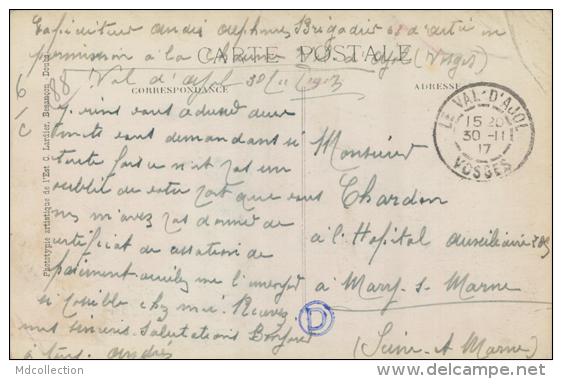 Expéditeur André Alphonse Brigadier d'artie en
permission à la V. d'Ajol (Vosges)
CARTE POSTALE
Val d'Ajol 30/11 1917
CORRESPONDANCE
ADRESSE
Je viens vous adresser deux
mots vous demandant si
toute fois ce n'est pas un
oubli de votre part que vous
ne m'avez pas donné de
certificat de cessation de
paiement. veuillez me l'envoyer
si possible chez moi. Recevez
mes sincères salutations Bonjour
à tous. André
Monsieur
Chardon
à l'Hopital Auxiliaire
à Mary-s-Marne
(Seine-et-Marne)
LE VAL-D'AJOL
15 20
30-11
17
VOSGES
D
Phototypie artistique de l'Est C. Lardier, Besançon, Doubs
delcampe.net